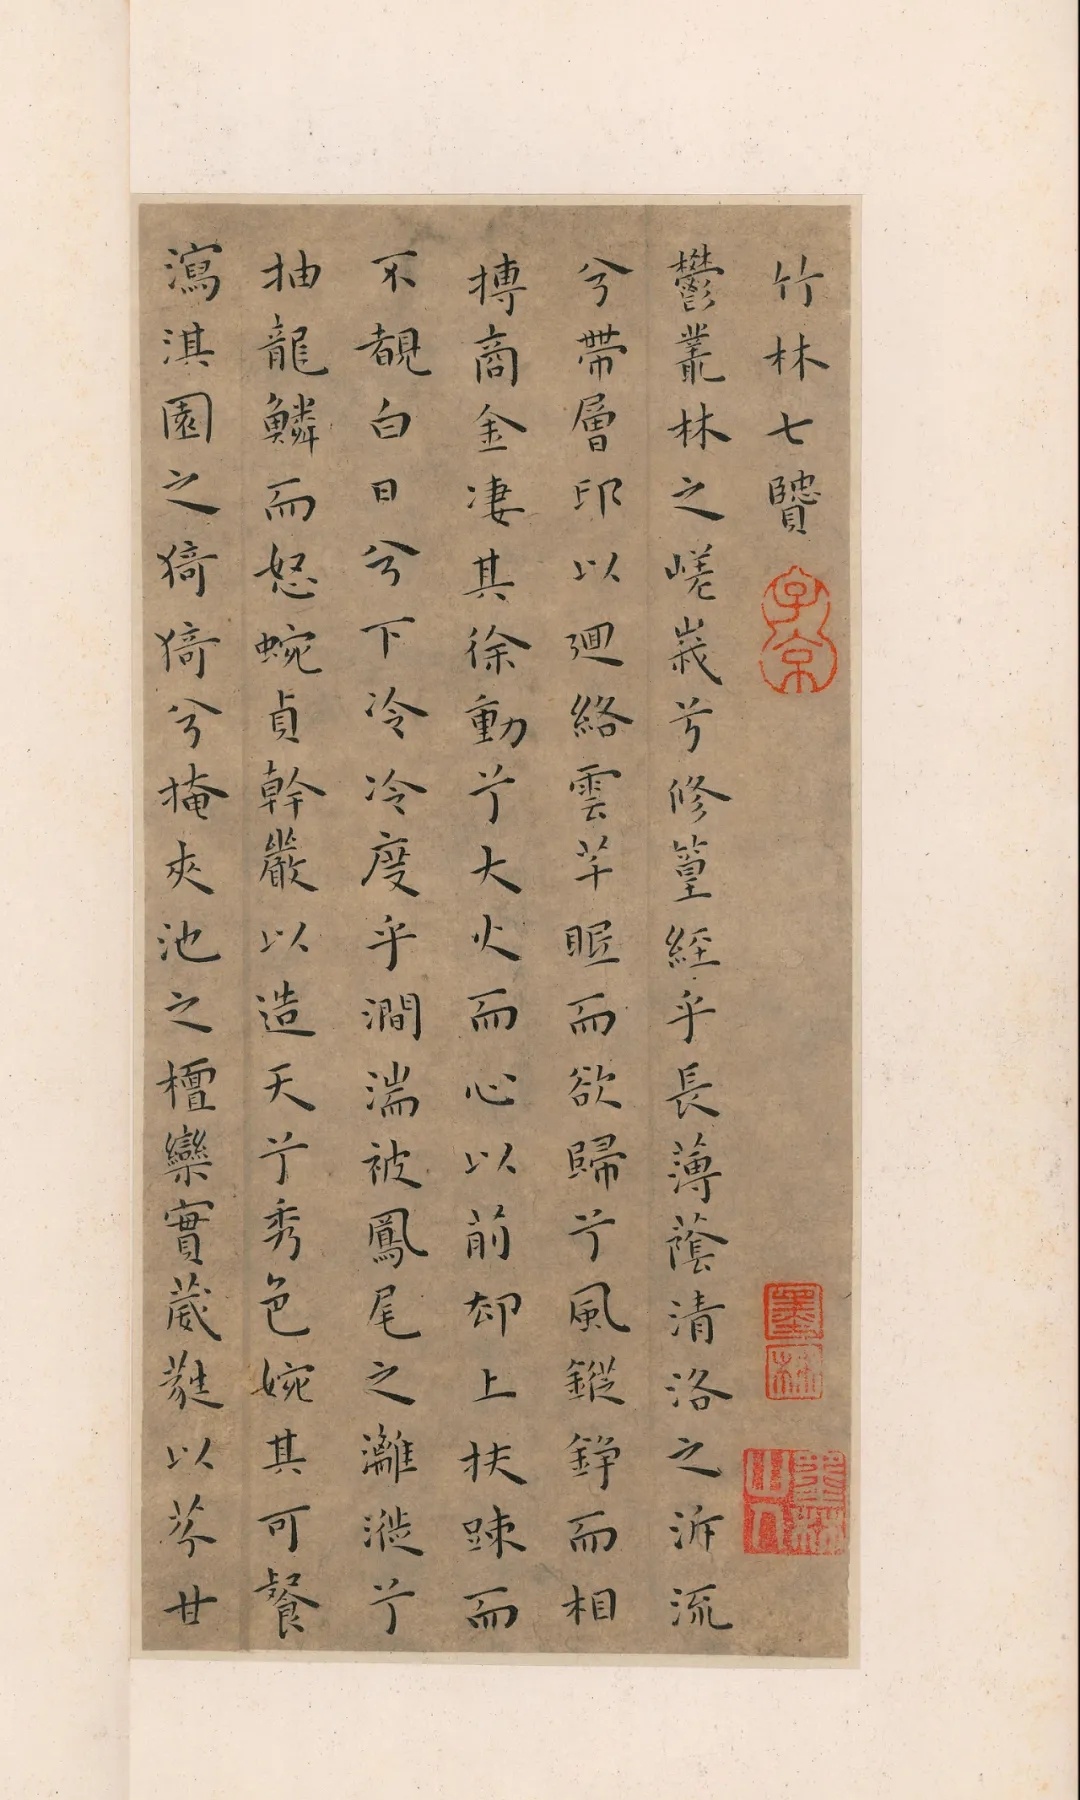 竹林七贤
鬱叢林之嵯峩兮修篁經乎長薄蔭清洛之泝流
兮帶層卬以迴絡雲芊眠而欲歸兮風鏦錚而相
摶商金凄其徐動兮大火而心以前却上扶踈而
不覩白日兮下冷冷度乎澗湍被鳳尾之灕漇兮
抽龍鱗而怒蜿貞幹嚴以造天兮秀色婉其可餐
瀉淇園之猗猗兮掩夾池之檀欒實葳蕤以芬甘
字京
墨林
墨林山人